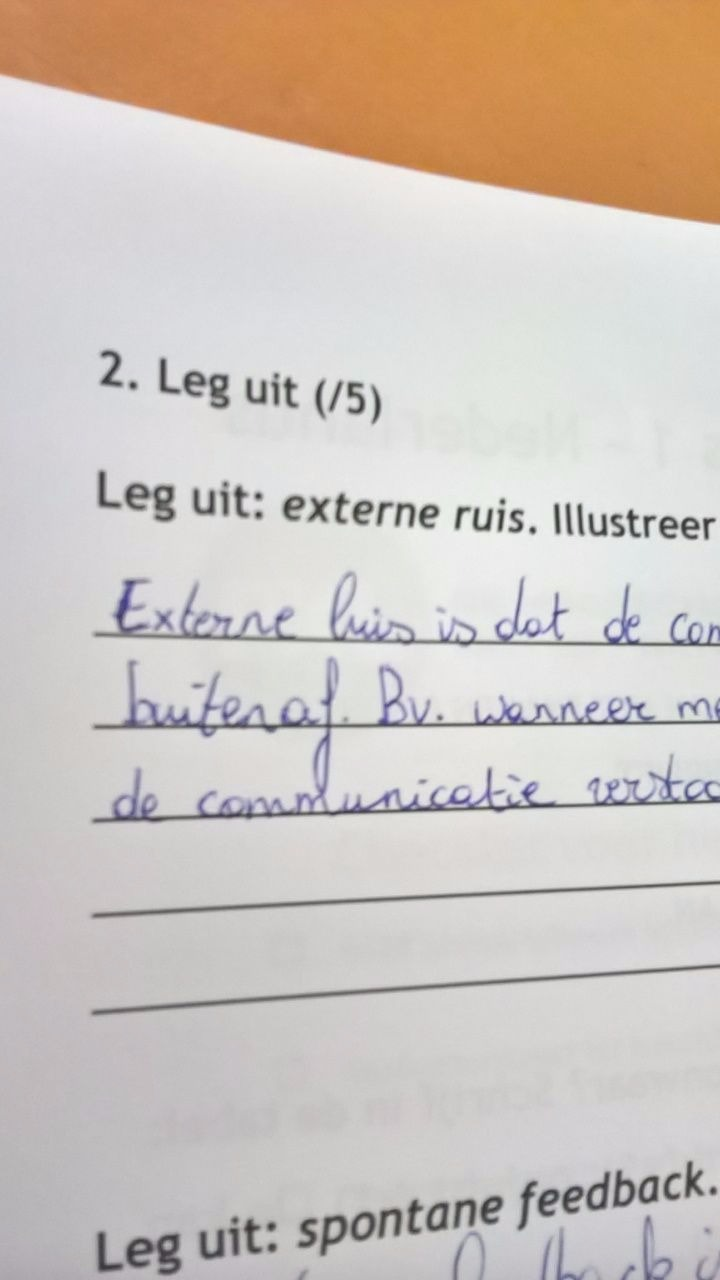 2. Leg uit (/5)
Leg uit: externe ruis. Illustreer
Externe ruis is dat de com
buitenaf. Bv. wanneer me
de communicatie versta
Leg uit: spontane feedback.